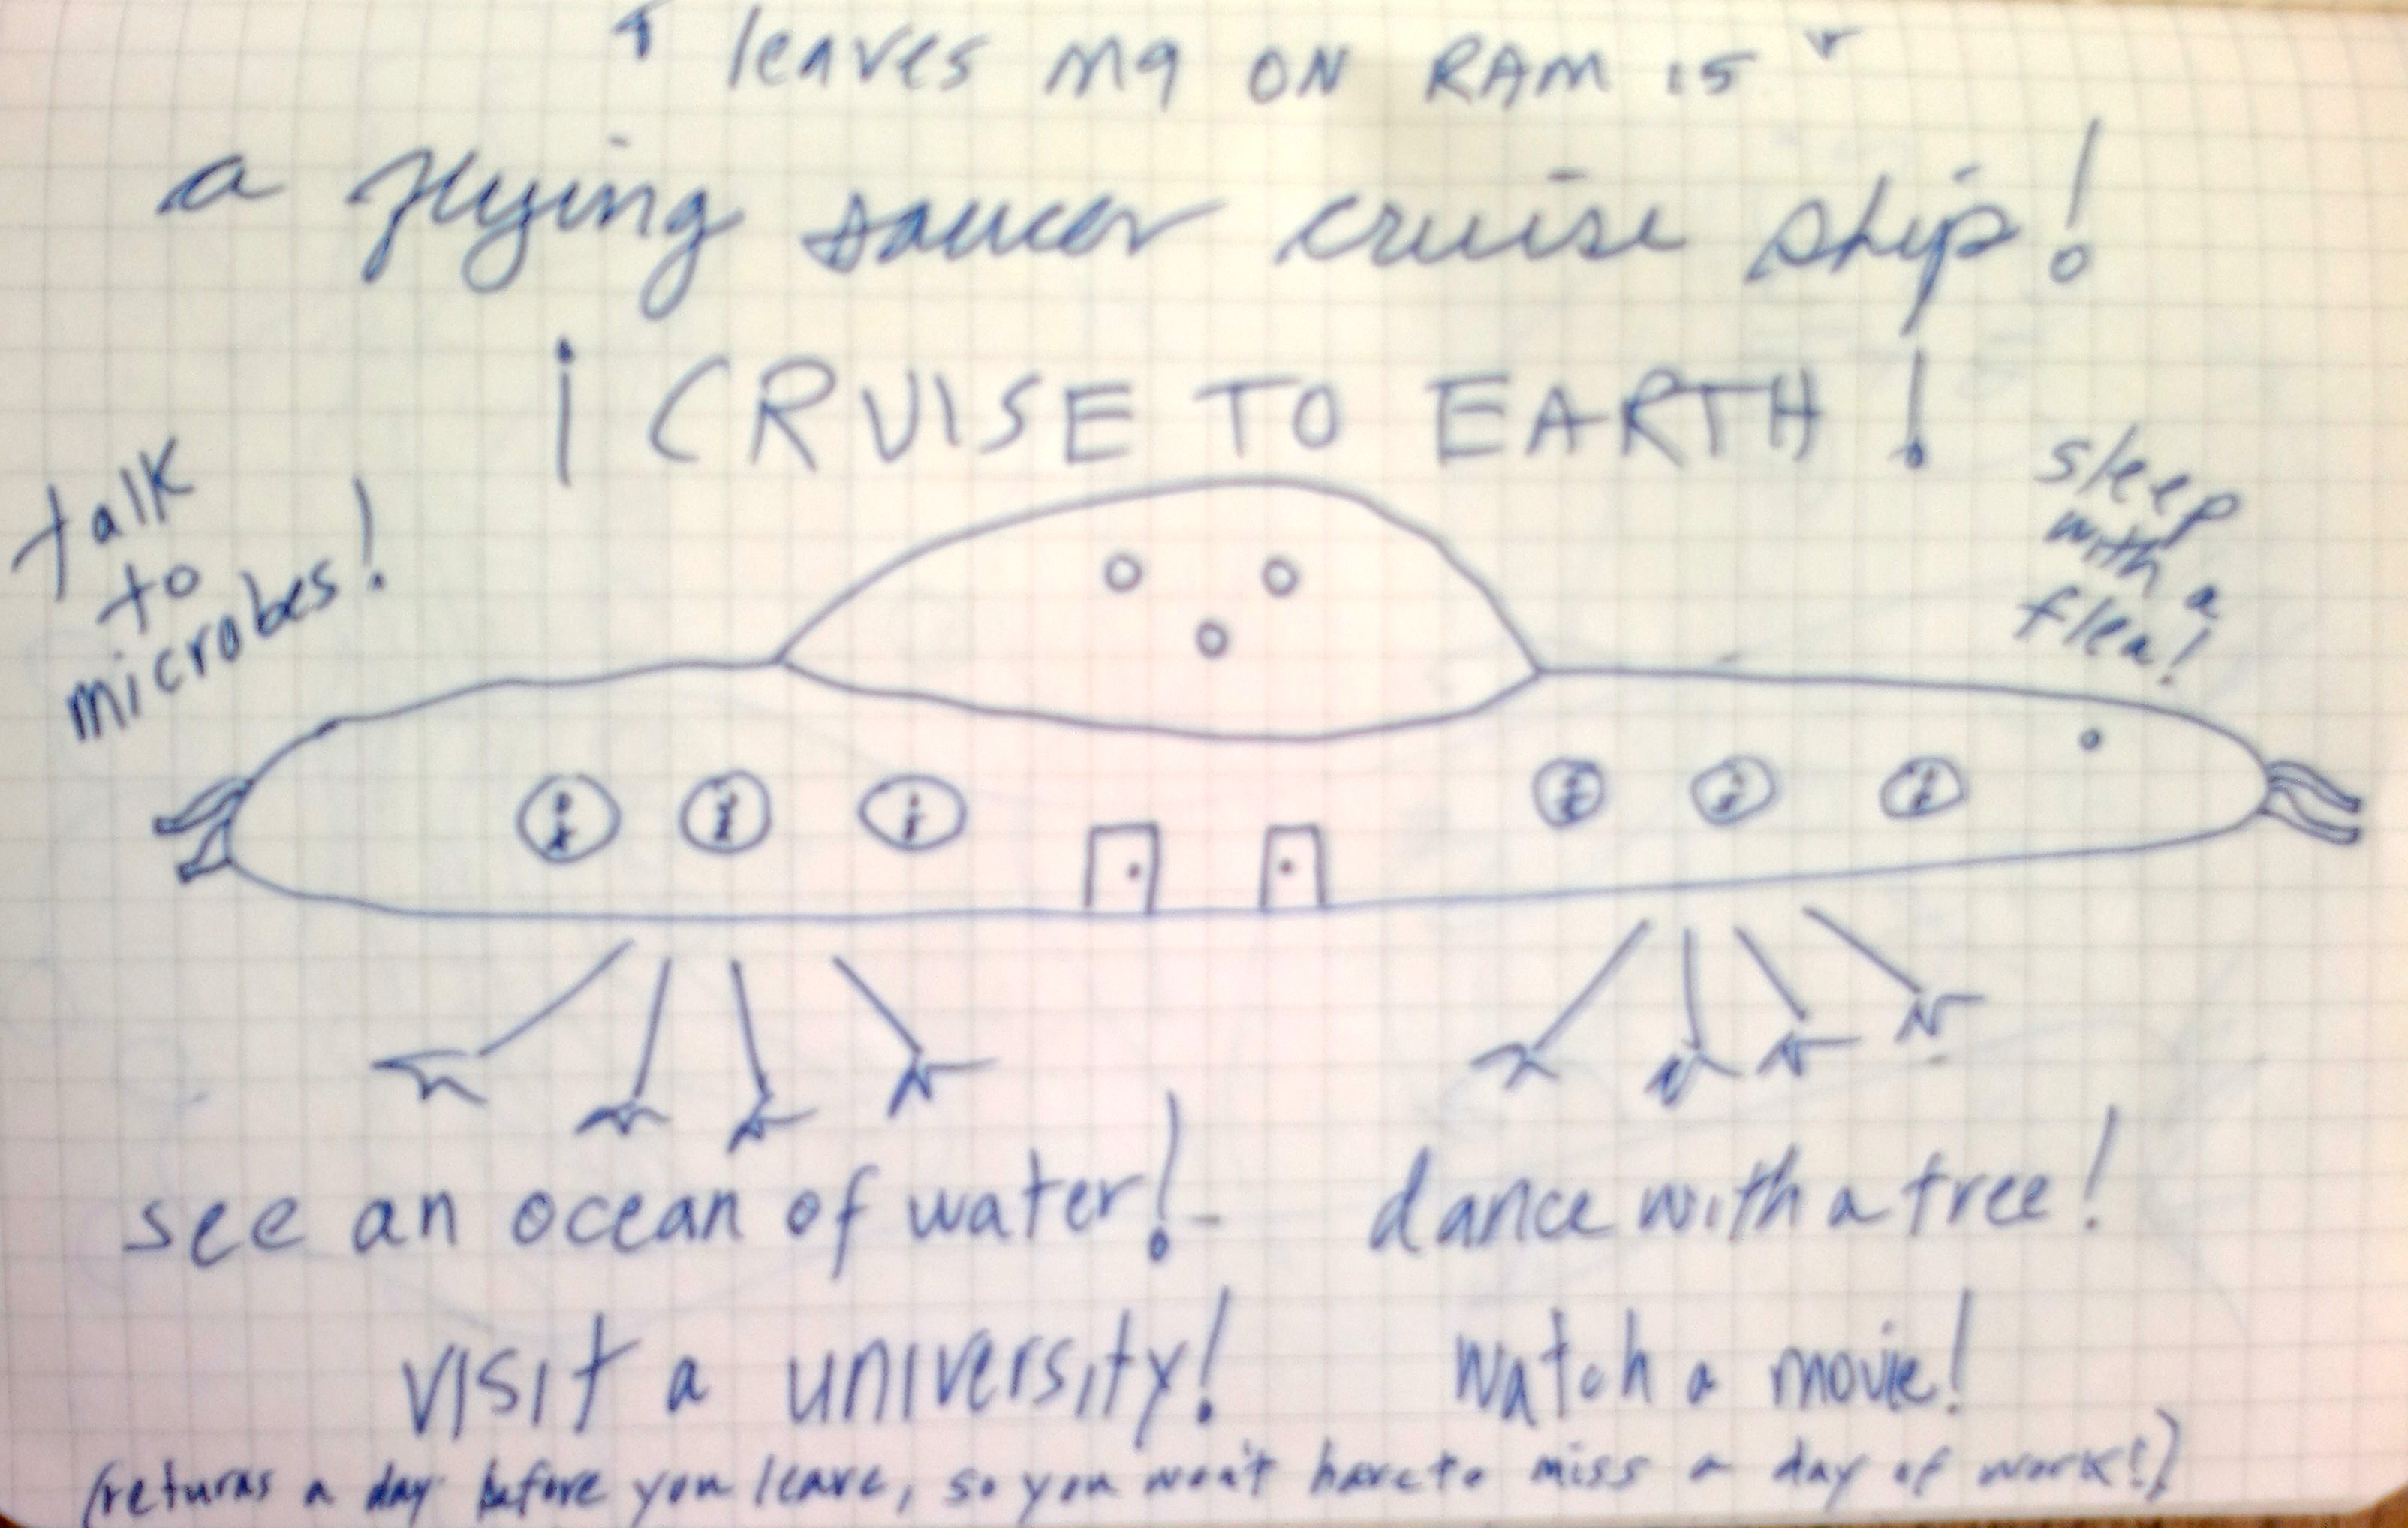 leaves M9 ON RAM 15
a flying saucer cruise ship!
¡CRUISE TO EARTH!
talk
to
microbes!
sleep
with a
flea!
see an ocean of water!
dance with a tree!
visit a university!
watch a movie!
(returns a day before you leave, so you won't have to miss a day of work!)